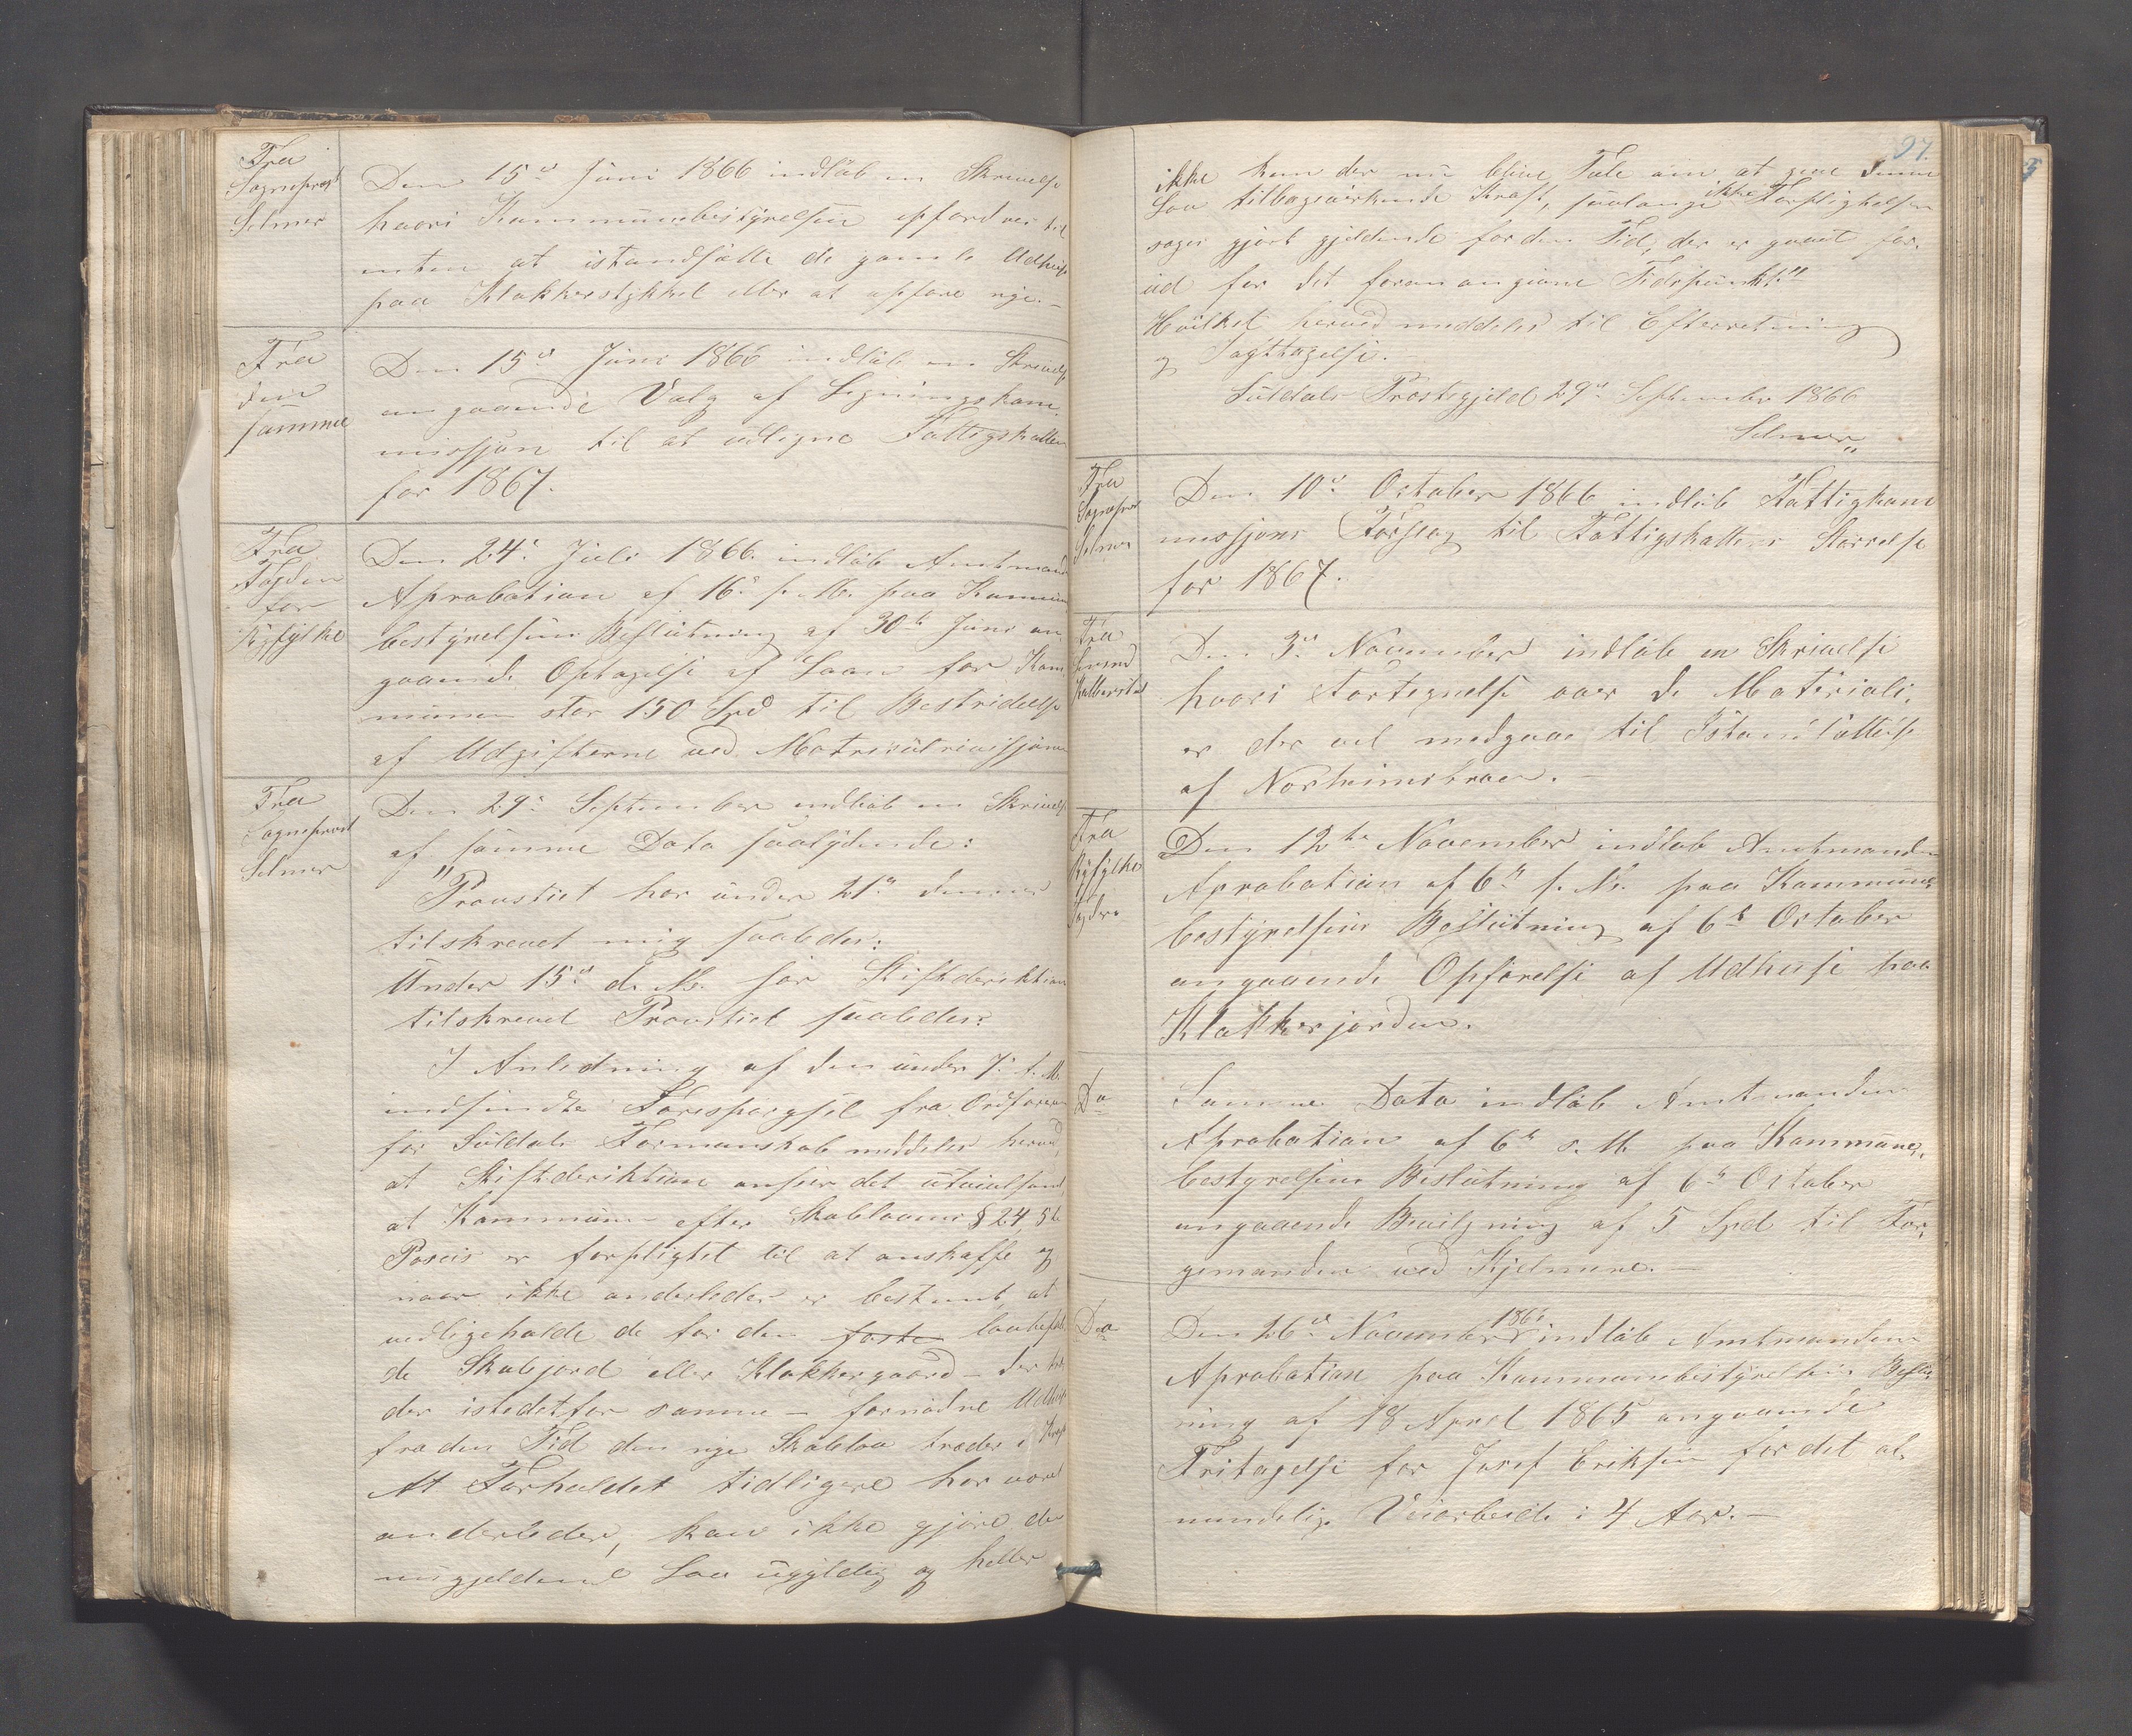 Fra
Sogneprest
Selmer
Den 15d Juni 1866 indløb en Skrivelse
hvori Kommunebestyrelsen opfordres til
enten at istandsætte de gamle Udhuse
paa Klokkerstykket eller at opføre nye.—
Fra
den
samme
Den 15d Juni 1866 indløb en Skrivelse
angaaende Valg af Ligningskom-
missjon til at udligne Fattigskatten
for 1867.
Fra
Fogden
for
Ryfylke
Den 24d Juli 1866. indløb Amtmand
Aprobation af 16d s. M. paa Kommune
bestyrelsens Beslutning af 30te Juni an
gaaende Optagelse af Laan for Kom
munen stor 150 Spd til Bestridelse
af Udgifterne ved Matrikulrevisjonen
Fra
Sogneprest
Selmer
Den 29d September indløb en Skrivelse
af samme Dato saalydende:
"Provstiet har under 21d dennes
tilskrevet mig saaledes:
Under 15d d. M. har Stiftdirektion
tilskrevet Provstiet saaledes:
I Anledning af den under 7d f. M.
indsendte Forespørgsel fra Ordføreren
for Suldals Formanskab meddeles herved,
at Stiftdirektion anser det utvivlsomt,
at Kommunen efter Skolelovens § 24 5te
Passus er forpligtet til at anskaffe og
naar ikke anderledes er bestemt, at
vedligeholde de for den faste lovbefal
de Skolejord eller Klokkergaard – der træ
der istedetfor samme – fornødne Udhuse
fra den Tid den nye Skolelov træder i Kraft
At Forholdet tidligere har været
anderledes, kan ikke gjøre den
nugjeldend Lov ugyldig og heller
97.
ikke kan der nu blive Tale om at give denne
Lov tilbagevirkende Kraft, saalænge ikke Forpligtelsen
søges gjort gjeldende for den Tid, der er gaaet for-
ud for det foran angivne Tidspunkt"
Hvilket herved meddeles til Efterretning
og Iagttagelse.
Suldals Prestegjeld 29d September 1866
Selmer"
Fra
Sogneprest
Selmer
Den 10d October 1866 indløb Fattigkom
missjons Forslag til Fattigskattens Størrelse
for 1867.
Fra
Den 3d November indløb en Skrivelse
hvori Fortegnelse over de Materiali-
er der vil medgaae til Istandsættelse
af Nordheimsbroen.—
Fra
Ryfylke
Fogderi
Den 12te November indløb Amtmandens
Aprobation af 6te s. M. paa Kommune-
bestyrelsens Beslutning af 6te October
angaaende Opførelse af Udhuse paa
Klokkerjorden.
Do
Samme Dato indløb Amtmandens
Aprobation af 6te s. M. paa Kommune-
bestyrelsens Beslutning af 6te October
angaaende Bevilgning af 5 Spd til Fær-
gemanden ved Hjelmene.—
Do
Den 26d November 1866 indløb Amtmandens
Aprobation paa Kommunebestyrelsens Beslut-
ning af 18 April 1865 angaaende
Fritagelse for Josef Eriksen for det al-
mindelige Veiarbeide i 4 Aar.—